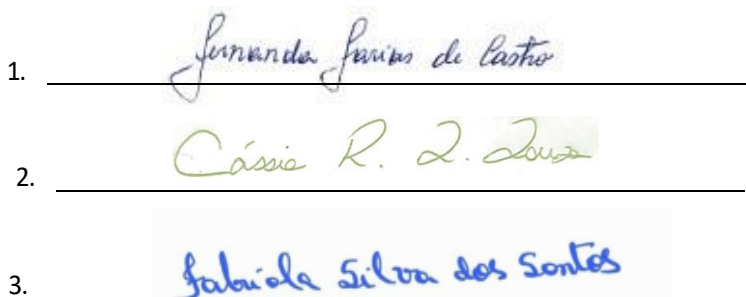 1. Fernanda Farias de Castro
2. Cássia R. Z. Souza
3. Fabiola Silva dos Santos